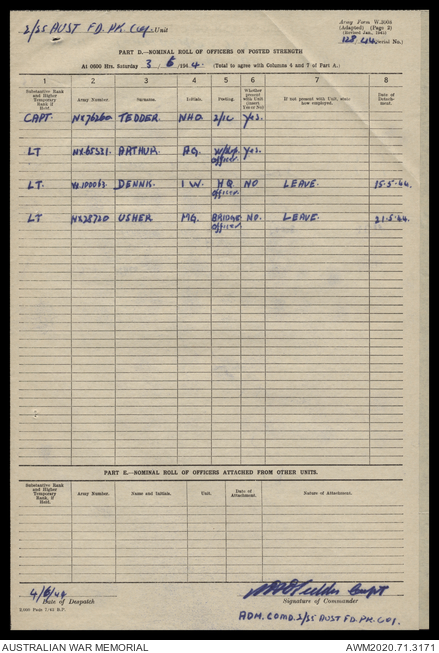 2/25 AUST FD. PK Coy. Unit
Army Form W.3008
(Adapted) (Page 2)
(Revised Jan., 1943)
128/44. Serial No.)
PART D.—NOMINAL ROLL OF OFFICERS ON POSTED STRENGTH
At 0600 Hrs. Saturday 3 / 6 /194 4. (Total to agree with Columns 4 and 7 of Part A.)
1 2 3 4 5 6 7 8
Substantive Rank and Higher Temporary Rank if Held. Army Number. Surname. Initials. Posting. Whether present with Unit (insert Yes or No) If not present with Unit, state how employed. Date of Detachment.
CAPT. NX76260 TEDDER. NHD. 2/IC yes.
LT NX65531. ARTHUR. AG. officer. yes.
LT. DENNIS. I W. HQ officer. NO LEAVE. 15-5-44.
LT NX28720 USHER MG. BRIDGE officer. NO. LEAVE. 21-5-44.
PART E.—NOMINAL ROLL OF OFFICERS ATTACHED FROM OTHER UNITS.
Substantive Rank and Higher Temporary Rank, if Held. Army Number. Name and Initials. Unit. Date of Attachment. Nature of Attachment.
4/6/44
Date of Despatch
Tedder Capt
Signature of Commander
ADM. COMD. 2/25 AUST FD. PK. COY.
AUSTRALIAN WAR MEMORIAL
AWM2020.71.3171